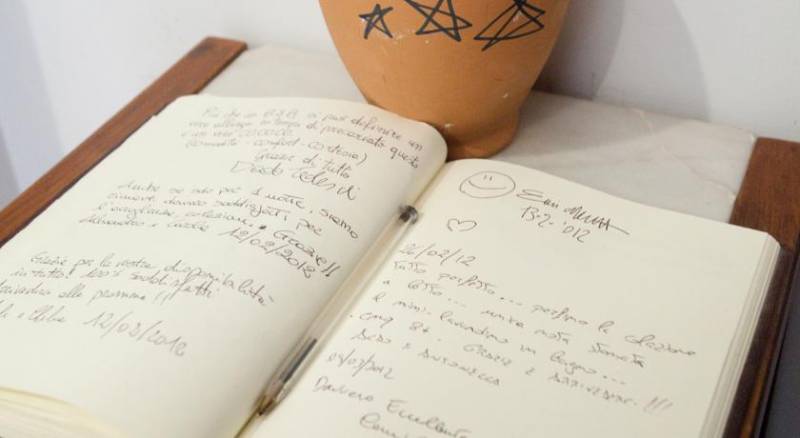 Più che un B&B si può definire un
vero albergo in tempi di precariato questo
è un vero
comodità - comfort - cortesia)
Grazie di tutto
Anche se solo per 1 notte, siamo
rimasti davvero soddisfatti, per
l'accoglienza, colazione... Grazie!!
12/02/2012
Grazie per la vostra disponibilità
in tutto! 100% soddisfatti
alla prossima!!!
12/02/2012
13-2-'012
26/02/12
Tutto perfetto... perfino la colazione
a letto... unica nota stonata
il mini lavandino in bagno...
cmq 8+. Grazie e arrivederci!!!
e Antonella
03/03/2012
Davvero Eccellente